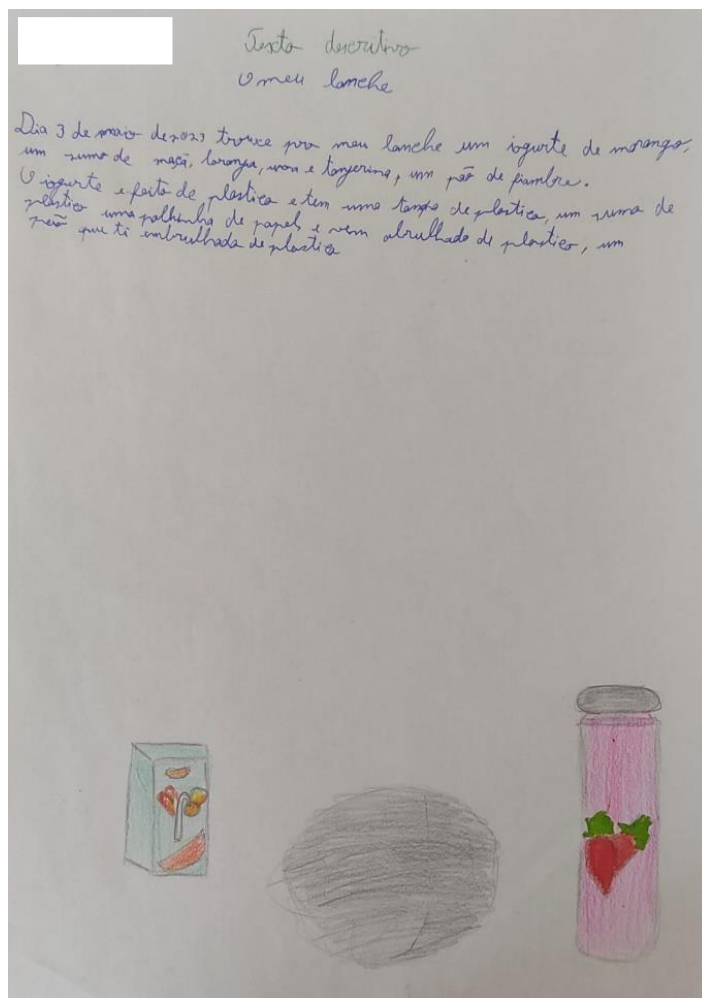 Texto descritivo
O meu lanche
Dia 3 de maio de 2023 trouxe pro meu lanche um iogurte de morango,
um sumo de maçã, laranja, uva e tangerina, um pão de fiambre.
O iogurte e feito de plastico e tem uma tampa de plastico, um sumo de
plastico uma palhinha de papel e vem abrulhado de plastico, um
pão que ti embrulhada de plastico